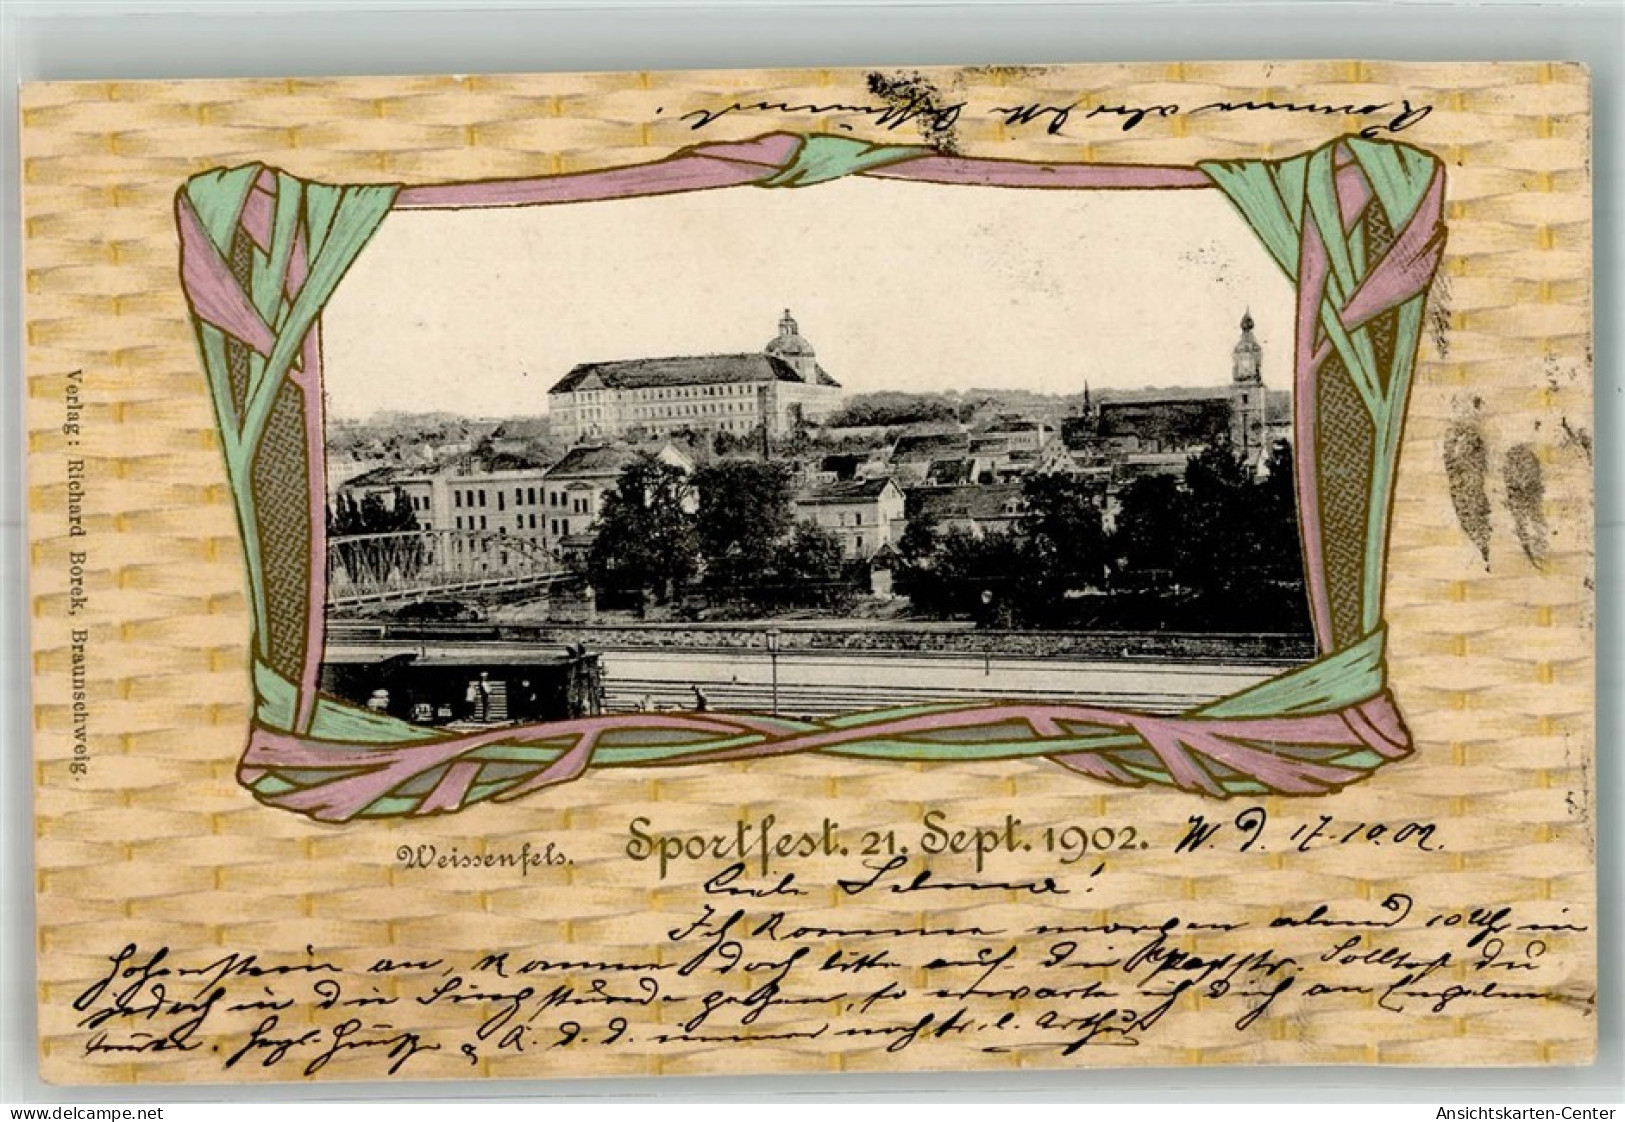 Komme aber bitte bestimmt.
Verlag: Richard Borek, Braunschweig.
Weissenfels.
Sportfest. 21. Sept. 1902. W. d. 17.10.02.
Liebe Selma!
Ich komme morgen abend 10 Uhr in
Hohenstein an, komme doch bitte auf die Solltest du
jedoch in die Singstunde gehen, so erwarte ich dich an
Herzl. Grüße & K. d. d. immer noch l. Arthur
delcampe.net
Ansichtskarten-Center